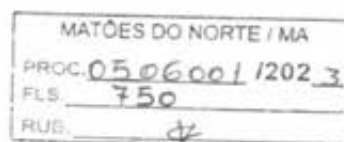 MATÕES DO NORTE / MA
PROC. 0506001 /2023
FLS. 750
RUB.